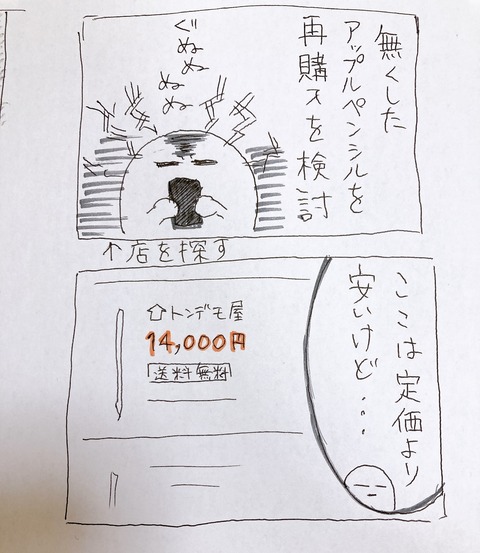 無くした
アップルペンシルを
再購入を検討
ぐぬぬ
ぬぬ
↑店を探す
ここは定価より
安いけど…
トンデモ屋
14,000円
送料無料